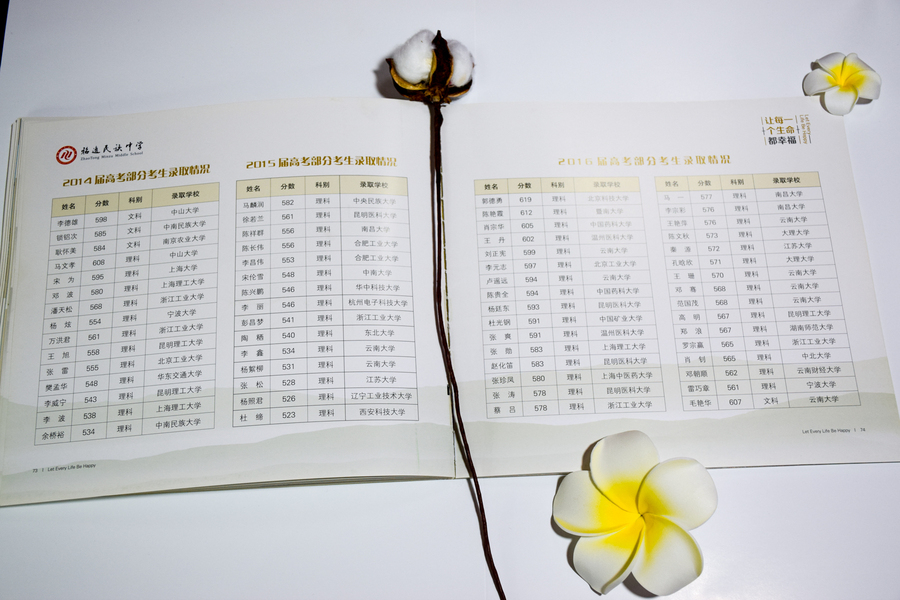 福通民族中学
ZhaoTong Minzu Middle School
2014届高考部分考生录取情况
姓名 分数 科别 录取学校
李德雄 598 文科 中山大学
锁铠次 585 文科 中南民族大学
耿怀美 584 文科 南京农业大学
马文孝 608 理科 中山大学
宋 为 595 理科 上海大学
邓 波 580 理科 上海理工大学
潘天松 568 理科 浙江工业大学
杨 炫 554 理科 宁波大学
万洪君 561 理科 浙江工业大学
王 旭 558 理科 昆明理工大学
张 雷 555 理科 北京工业大学
樊孟华 548 理科 华东交通大学
李威宁 543 理科 昆明理工大学
李 波 538 理科 上海理工大学
余桥裕 534 理科 中南民族大学
2015届高考部分考生录取情况
姓名 分数 科别 录取学校
马麟润 582 理科 中央民族大学
徐若兰 561 理科 昆明医科大学
陈祥群 556 理科 南昌大学
陈长伟 556 理科 合肥工业大学
李昌伟 553 理科 合肥工业大学
宋伦雪 548 理科 中南大学
陈兴鹏 546 理科 华中科技大学
李 丽 546 理科 杭州电子科技大学
彭昌梦 541 理科 浙江工业大学
陶 栖 540 理科 东北大学
李 鑫 534 理科 云南大学
杨絮柳 531 理科 云南大学
张 松 528 理科 江苏大学
杨照君 526 理科 辽宁工业技术大学
杜 缔 523 理科 西安科技大学
73 | Let Every Life Be Happy
让每一
个生命
都幸福
Let Every
Life Be Happy
2016届高考部分考生录取情况
姓名 分数 科别 录取学校
郭德勇 619 理科 北京科技大学
陈艳霞 612 理科 暨南大学
肖宗华 605 理科 中国药科大学
王 丹 602 理科 温州医科大学
刘正宪 599 理科 云南大学
李元志 597 理科 北京工业大学
卢遥远 594 理科 云南大学
陈贵全 594 理科 中国药科大学
杨廷东 593 理科 昆明医科大学
杜光钢 591 理科 中国矿业大学
张 爽 591 理科 温州医科大学
张 勋 583 理科 上海理工大学
赵化笛 583 理科 昆明医科大学
张珍凤 580 理科 上海中医药大学
张 涛 578 理科 昆明医科大学
蔡 吕 578 理科 浙江工业大学
姓名 分数 科别 录取学校
577 理科 南昌大学
李宗彩 576 理科 南昌大学
王艳萍 576 理科 云南大学
陈文秋 573 理科 大理大学
秦 源 572 理科 江苏大学
孔晗欣 571 理科 大理大学
王 珊 570 理科 云南大学
邓 骞 568 理科 云南大学
范国茂 568 理科 云南大学
高 明 567 理科 昆明理工大学
郑 浪 567 理科 湖南师范大学
罗宗赢 565 理科 浙江工业大学
肖 钊 565 理科 中北大学
邓朝顺 562 理科 云南财经大学
雷巧章 561 理科 宁波大学
毛艳华 607 文科 云南大学
Let Every Life Be Happy | 74